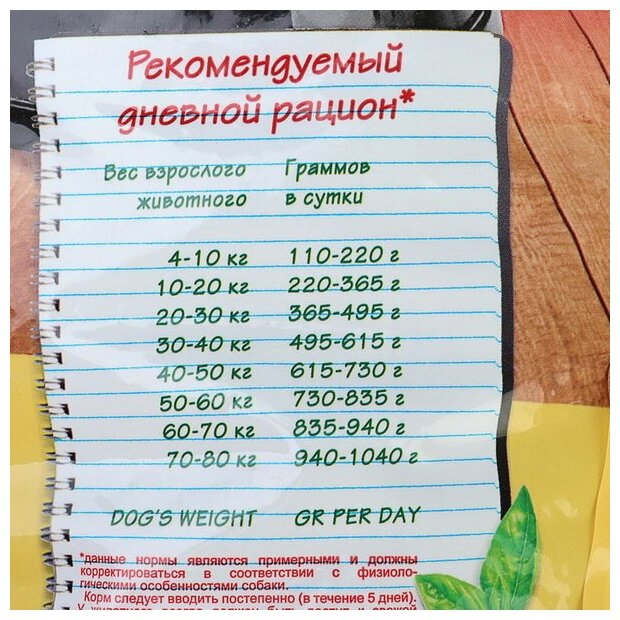 Рекомендуемый
дневной рацион*
Вес взрослого Граммов
животного в сутки
4-10 кг 110-220 г
10-20 кг 220-365 г
20-30 кг 365-495 г
30-40 кг 495-615 г
40-50 кг 615-730 г
50-60 кг 730-835 г
60-70 кг 835-940 г
70-80 кг 940-1040 г
DOG'S WEIGHT GR PER DAY
*данные нормы являются примерными и должны
корректироваться в соответствии с физиоло-
гическими особенностями собаки.
Корм следует вводить постепенно (в течение 5 дней).
У животного всегда должен быть доступ к свежей